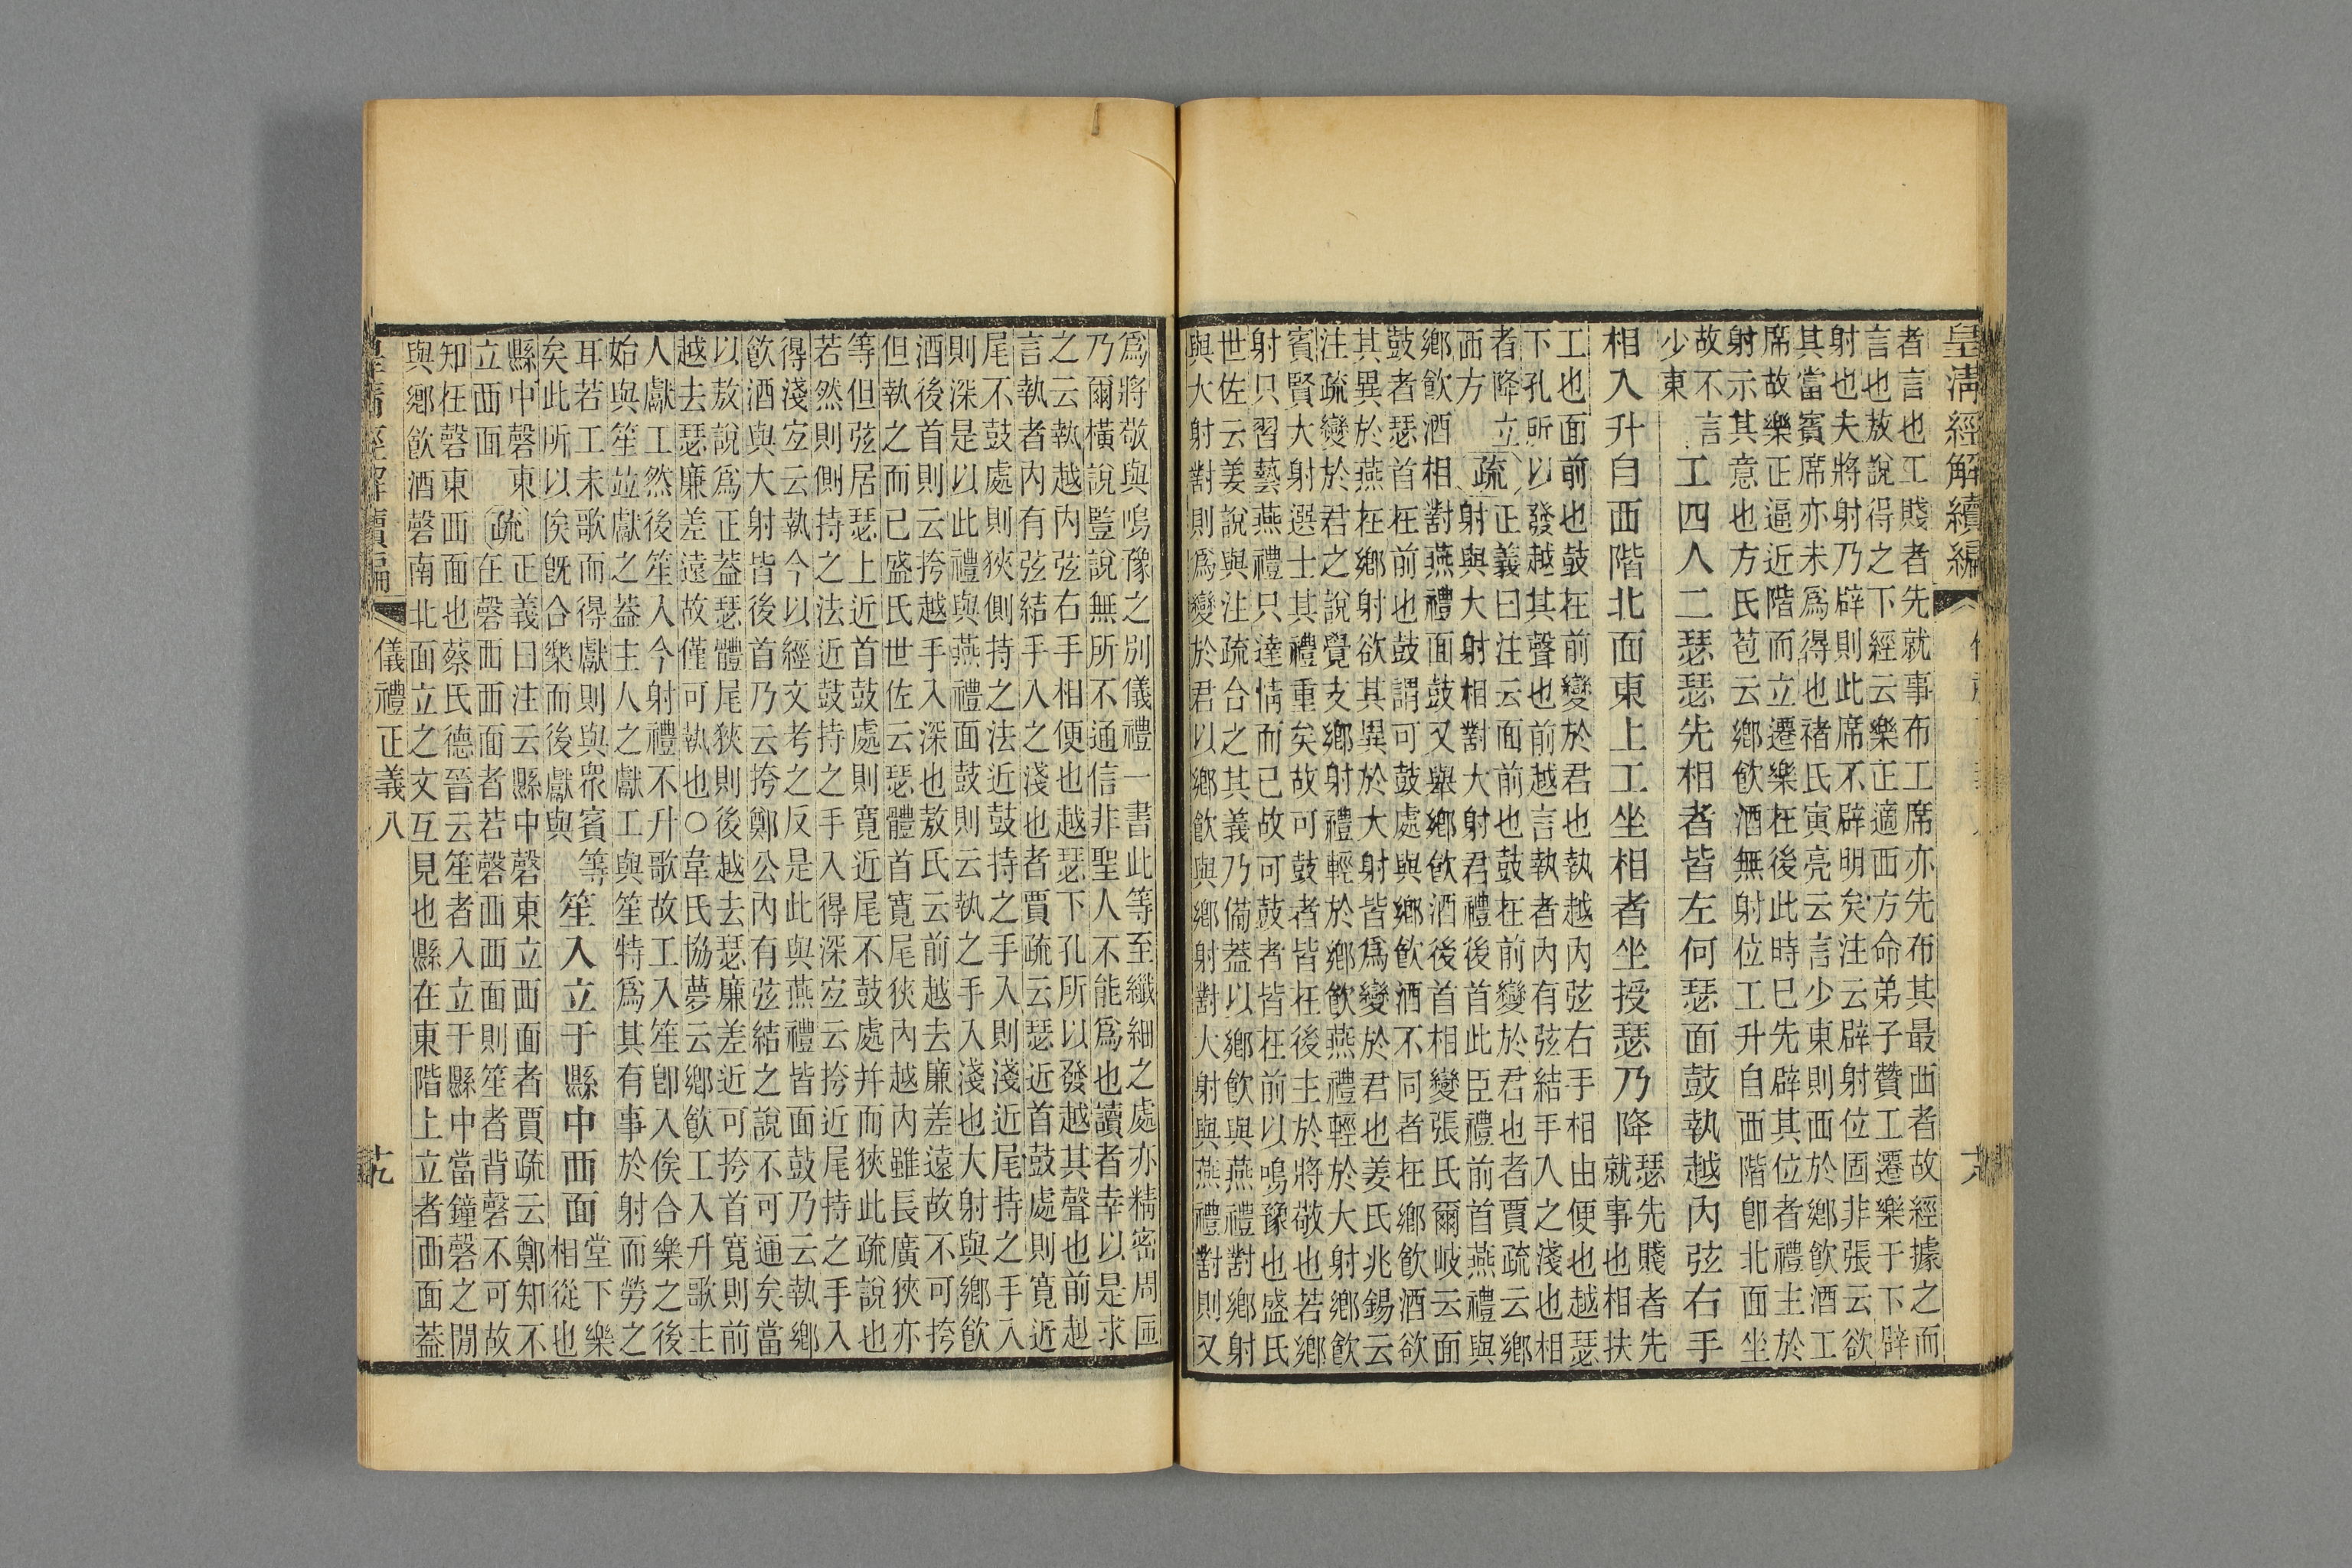 皇淸經解續編
者言也工賤者先就事布工席亦先布其最西者故經據之而
言也敖說得之下經云樂正適西方命弟子贊工遷樂于下辟
射也夫將射乃辟則此席不辟明矣注云辟射位固非張云欲
其當賓席亦未爲得也褚氏寅亮云言少東則西於鄕飮酒工
席故樂正逼近階而立遷樂在後此時已先辟其位者禮主於
射示其意也方氏苞云鄕飮酒無射位工升自西階卽北面坐
故不言
少東
工四人二瑟瑟先相者皆左何瑟面鼓執越內弦右手
相入升自西階北面東上工坐相者坐授瑟乃降
瑟先賤者先
就事也相扶
工也面前也鼓在前變於君也執越內弦右手相由便也越瑟
下孔所以發越其聲也前越言執者內有弦結手入之淺也相
者降立
西方
疏
正義曰注云面前也鼓在前變於君也者賈疏云鄕
射與大射相對大射君禮後首此臣禮前首燕禮與
鄕飮酒相對燕禮面鼓又與鄕飮酒後首相變張氏爾岐云面
鼓者瑟首在前也鼓謂可鼓處與鄕飮酒不同者在鄕飮酒欲
其異於燕在鄕射欲其異於大射皆爲變於君也姜氏兆錫云
注疏變於君之說覺支鄕射禮輕於鄕飮燕禮輕於大射鄕飮
賓賢大射選士其禮重矣故可鼓者皆在後主於將敬也若鄕
射只習藝燕禮只達情而已故可鼓者皆在前以鳴豫也盛氏
世佐云姜說與注疏合之其義乃備蓋以鄕飮與燕禮對鄕射
與大射對則爲變於君以鄕飮與鄕射對大射與燕禮對則又
爲將敬與鳴豫之別儀禮一書此等至纖細之處亦精密周匝
乃爾橫說豎說無所不通信非聖人不能爲也讀者幸以是求
之云執越內弦右手相便也越瑟下孔所以發越其聲也前越
言執者內有弦結手入之淺也者賈疏云瑟近首鼓處則寬近
尾不鼓處則狹側持之法近鼓持之手入則淺近尾持之手入
則深是以此禮與燕禮面鼓則云執之手入淺也大射與鄕飮
酒後首則云挎越手入深也敖氏云前越去廉差遠故不可挎
但執之而已盛氏世佐云瑟體首寬尾狹內越內雖長廣狹亦
等但弦居瑟上近首鼓處則寬近尾不鼓處并而狹此疏說也
若然則側持之法近鼓持之手入得深宐云挎近尾持之手入
得淺宐云執今以經文考之反是此與燕禮皆面鼓乃云執鄕
飮酒與大射皆後首乃云挎鄭公內有弦結之說不可通矣當
以敖說爲正蓋瑟體尾狹則後越去瑟廉差近可挎首寬則前
越去瑟廉差遠故僅可執也○韋氏協夢云鄕飮工入升歌主
人獻工然後笙入今射禮不升歌故工入笙卽入俟合樂之後
始與笙竝獻之蓋主人之獻工與笙特爲其有事於射而勞之
耳若工未歌而得獻則與眾賓等
矣此所以俟旣合樂而後獻與
笙入立于縣中西面
堂下樂
相從也
縣中磬東
立西面
疏
正義曰注云縣中磬東立西面者賈疏云鄭知不
在磬西西面者若磬西西面則笙者背磬不可故
知在磬東西面也蔡氏德晉云笙者入立于縣中當鐘磬之閒
與鄕飮酒磬南北面立之文互見也縣在東階上立者西面蓋
儀禮正義八